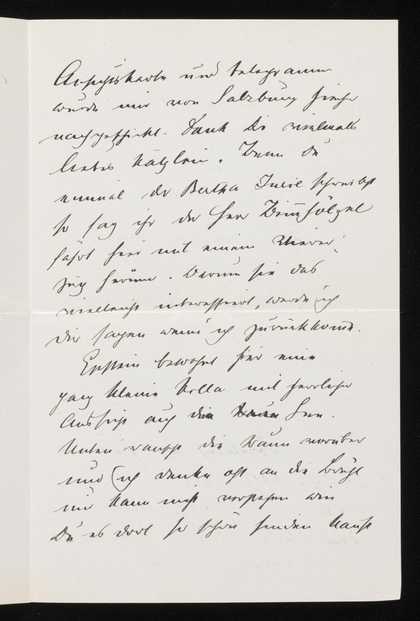 Ansichtskarte und Telegramm
wurde mir von Salzburg hieher
nachgeschickt. Dank Dir vielmals
liebes Kätzlein. Wenn Du
einmal der Bertha Turie schreibst
so sag ihr der Herr
fährt hier mit einem Vierer
zug herum. Warum sie das
vielleicht interessiert, werde ich
Dir sagen wenn ich zurückkomme.
Epstein bewohnt hier eine
ganz kleine Villa mit herrlicher
Aussicht auf den See.
Unten rauscht die Traun vorüber
und ich denke oft an die Brühl
und kann nicht vergessen wie
Du es dort so schön finden kannst